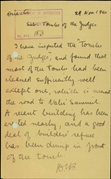 Director
28 Nov. 1920
Tombs of the Judges
153
I have inspected the Tombs
of the Judges, and found that
most of the Tombs had been
cleaned sufficiently well
except one, which is near
the road to Nebi Samuel.
A recent building has been
set up nearly, and a good
deal of builders' refuse
has been dump in front
of the tomb.